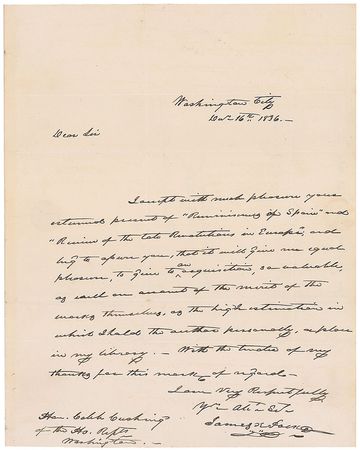 Washington City
Decr 16th 1836.-
Dear Sir
I accept with much pleasure your
esteemed present of "Reminiscences of Spain" and
"Review of the late Revolutions in Europe", and
beg to assure you, that it will give me equal
pleasure, to give to an acquisition, so valuable,
as well on account of the merit of the
works themselves, as the high estimation in
which I hold the author personally, a place
in my library. - With the tender of my
thanks for this mark of regard -
I am Very Respectfully
Yr Obt Svt
James K Polk
Hon. Caleb Cushing
of the Ho. Repts
Washington. -